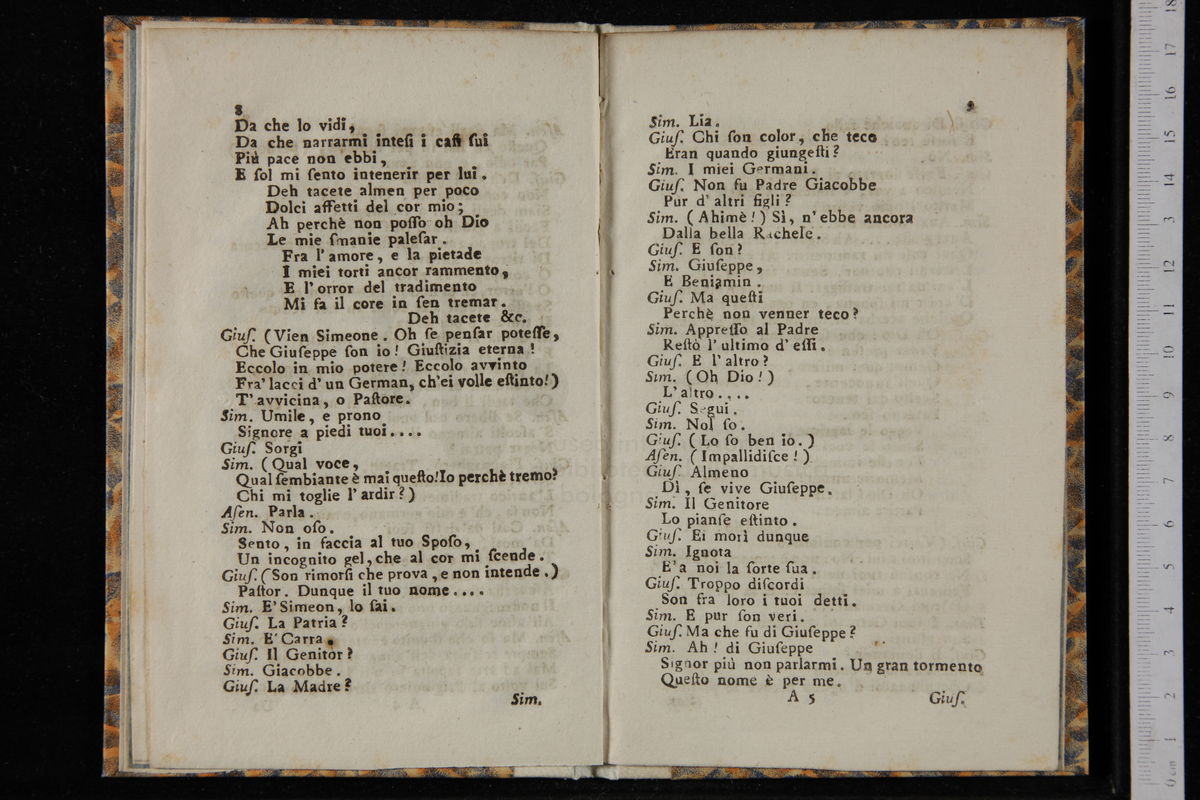 8
Da che lo vidi,
Da che narrarmi inteſi i caſi ſui
Più pace non ebbi,
E ſol mi ſento intenerir per lui.
Deh tacete almen per poco
Dolci affetti del cor mio;
Ah perchè non poſſo oh Dio
Le mie ſmanie paleſar.
Fra l'amore, e la pietade
I miei torti ancor rammento,
E l'orror del tradimento
Mi fa il core in ſen tremar.
Deh tacete &c.
Giuſ. (Vien Simeone. Oh ſe penſar poteſſe,
Che Giuſeppe ſon io! Giuſtizia eterna!
Eccolo in mio potere! Eccolo avvinto
Fra' lacci d'un German, ch'ei volle eſtinto!)
T'avvicina, o Paſtore.
Sim. Umile, e prono
Signore a piedi tuoi....
Giuſ. Sorgi
Sim. (Qual voce,
Qual ſembiante è mai queſto! Io perchè tremo?
Chi mi toglie l'ardir?)
Aſen. Parla.
Sim. Non oſo.
Sento, in faccia al tuo Spoſo,
Un incognito gel, che al cor mi ſcende.
Giuſ. (Son rimorſi che prova, e non intende.)
Paſtor. Dunque il tuo nome....
Sim. E' Simeon, lo ſai.
Giuſ. La Patria?
Sim. E' Carra.
Giuſ. Il Genitor?
Sim. Giacobbe.
Giuſ. La Madre?
Sim.
9
Sim. Lia.
Giuſ. Chi ſon color, che teco
Eran quando giungeſti?
Sim. I miei Germani.
Giuſ. Non fu Padre Giacobbe
Pur d'altri figli?
Sim. (Ahimè!) Sì, n'ebbe ancora
Dalla bella Rachele.
Giuſ. E ſon?
Sim. Giuſeppe,
E Beniamin.
Giuſ. Ma queſti
Perchè non venner teco?
Sim. Appreſſo al Padre
Reſtò l'ultimo d'eſſi.
Giuſ. E l'altro?
Sim. (Oh Dio!)
L'altro....
Giuſ. Segui.
Sim. Nol ſo.
Giuſ. (Lo ſo ben io.)
Aſen. (Impallidiſce!)
Giuſ. Almeno
Dì, ſe vive Giuſeppe.
Sim. Il Genitore
Lo pianſe eſtinto.
Giuſ. Ei morì dunque
Sim. Ignota
E' a noi la ſorte ſua.
Giuſ. Troppo diſcordi
Son fra loro i tuoi detti.
Sim. E pur ſon veri.
Giuſ. Ma che fu di Giuſeppe?
Sim. Ah! di Giuſeppe
Signor più non parlarmi. Un gran tormento
Queſto nome è per me.
A 5
Giuſ.